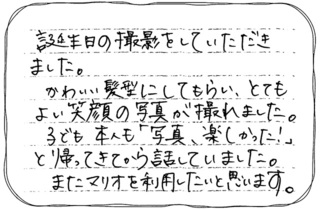 誕生日の撮影をしていただき
ました。
かわいい髪型にしてもらい、とても
よい笑顔の写真が撮れました。
子ども本人も「写真、楽しかった!」
と帰ってきてから話していました。
またマリオを利用したいと思います。